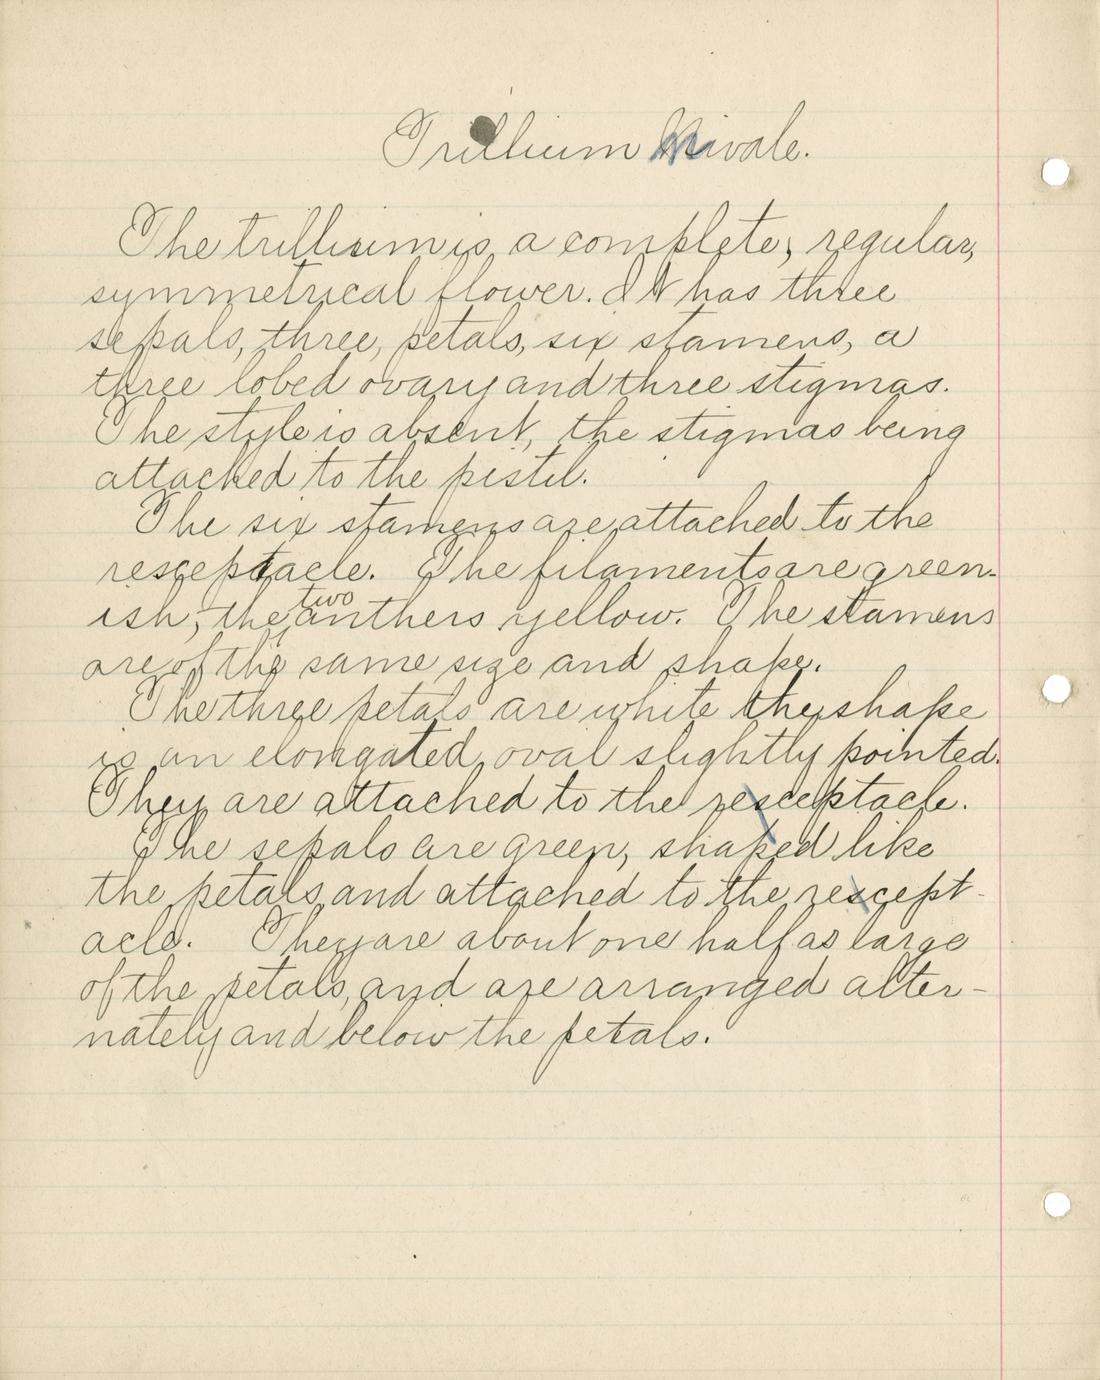 Trillium Rivale.
The trillium is a complete, regular,
symmetrical flower. It has three
sepals, three, petals, six stamens, a
three lobed ovary and three stigmas.
The style is absent, the stigmas being
attached to the pistil.
The six stamens are attached to the
resceptacle. The filaments are green-
ish, the two anthers yellow. The stamens
are of the same size and shape.
The three petals are white the shape
is an elongated oval slightly pointed.
They are attached to the resceptacle.
The sepals are green, shaped like
the petals and attached to the rescept-
acle. They are about one half as large
of the petals, and are arranged alter-
nately and below the petals.